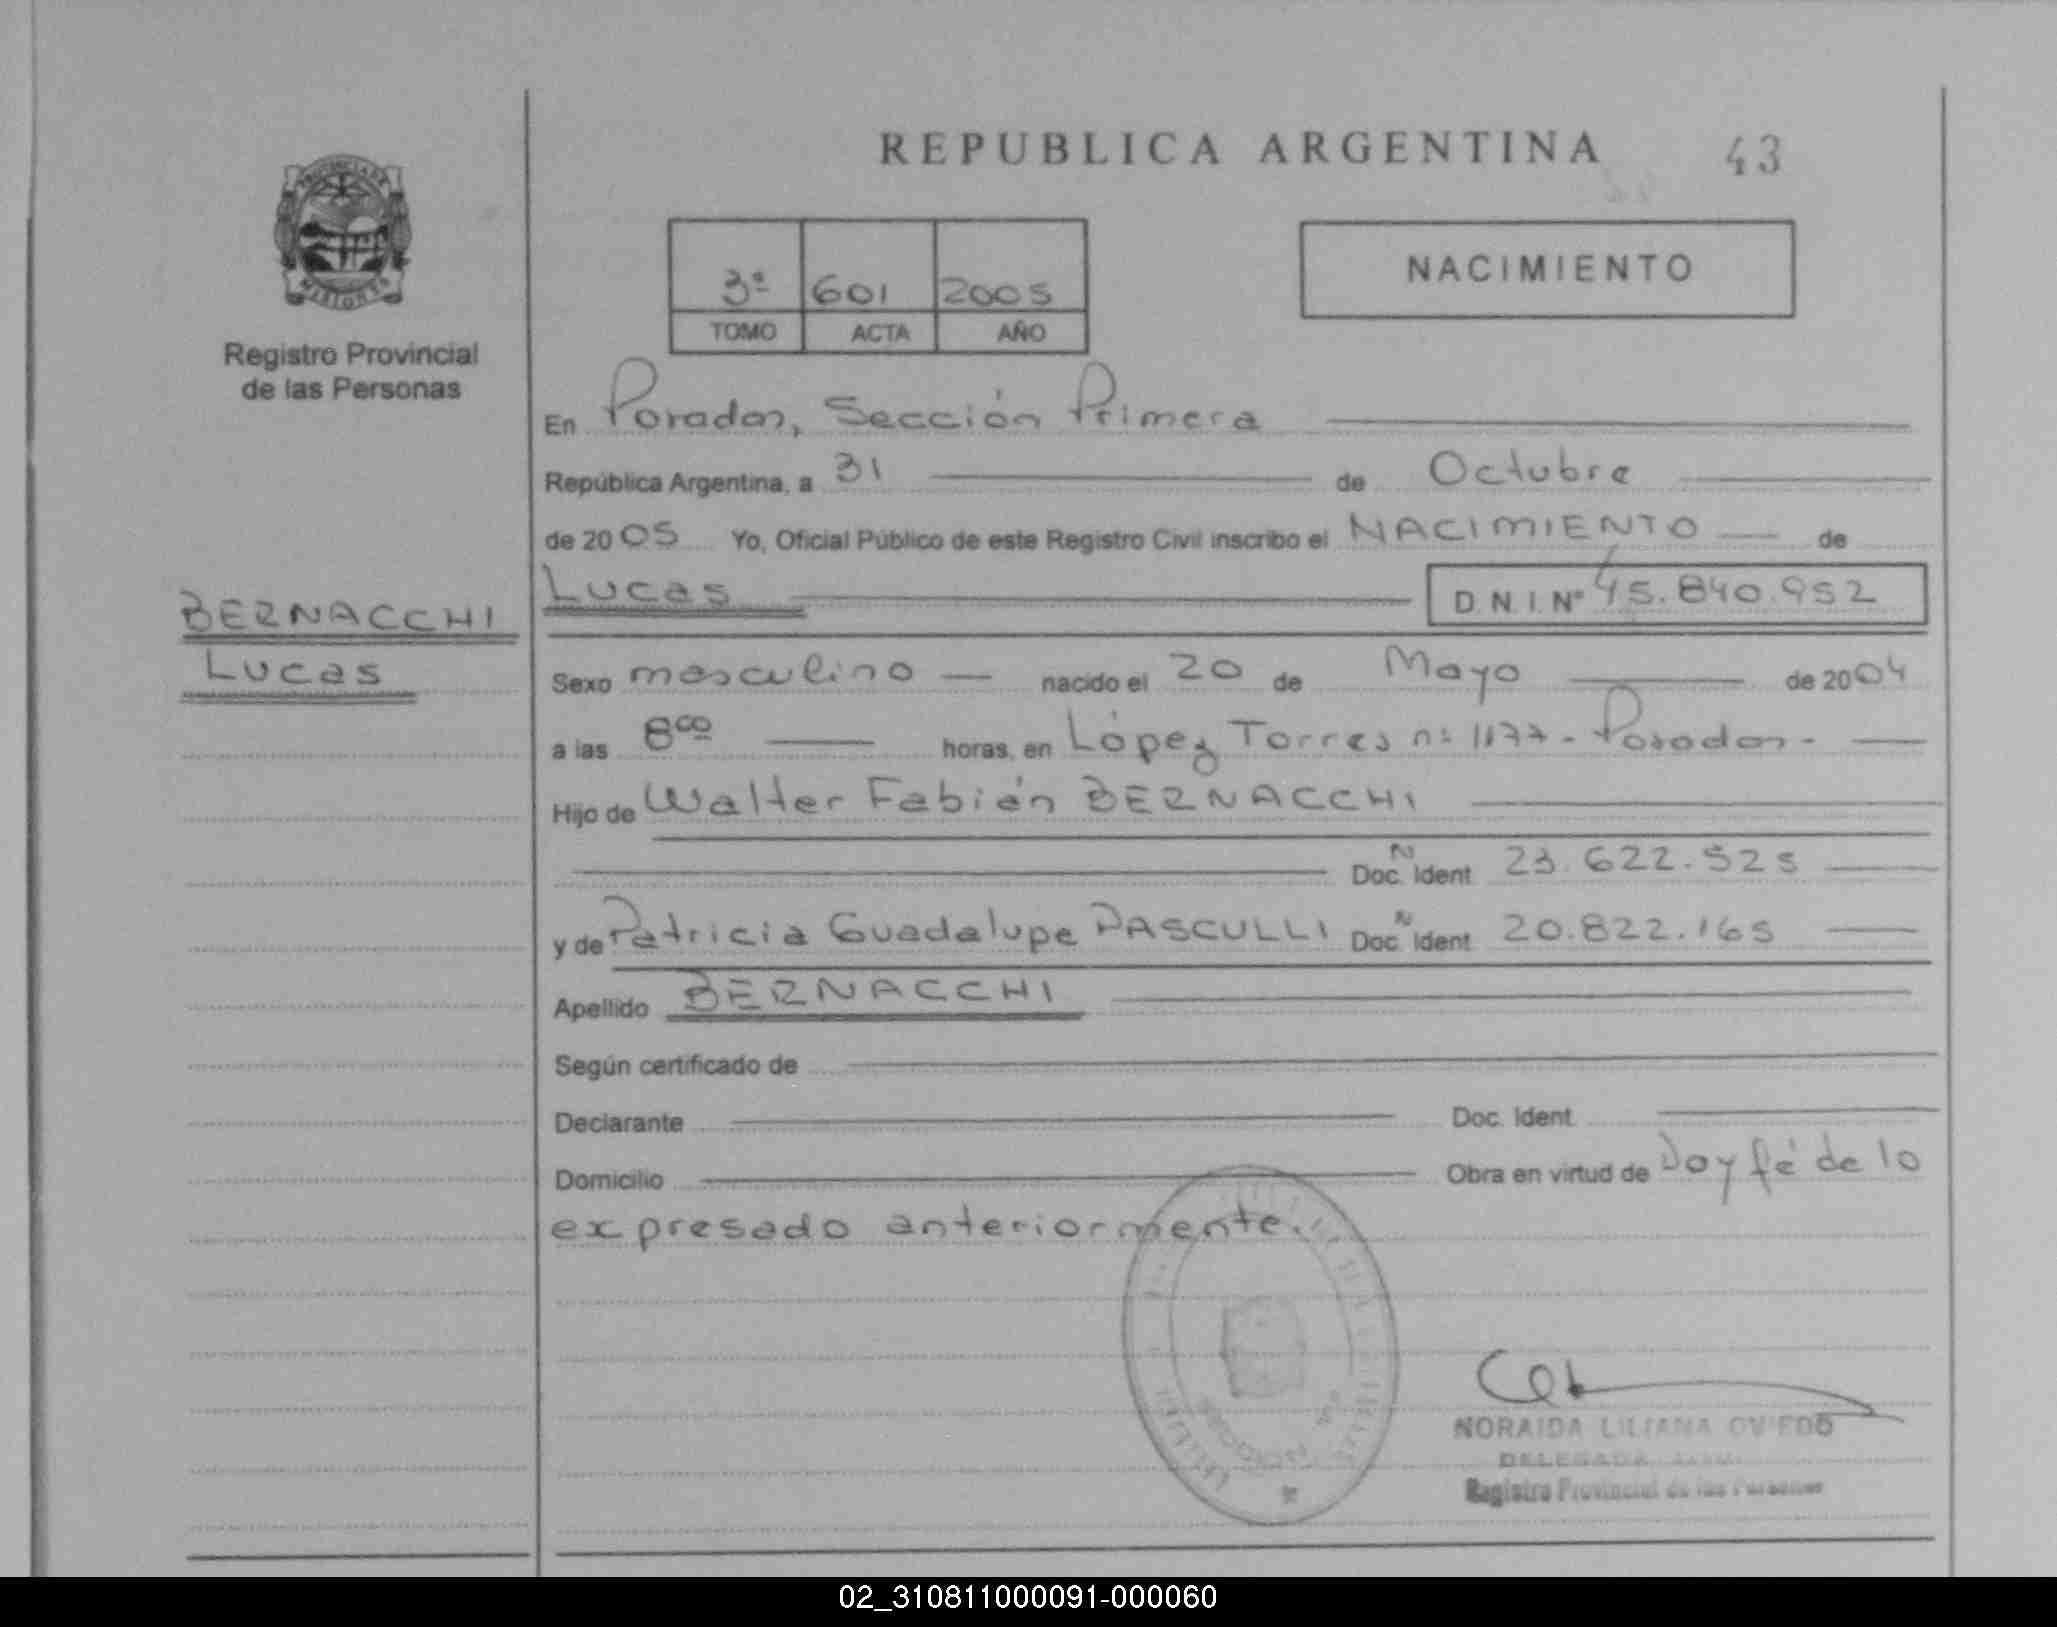 REPUBLICA ARGENTINA 43
PROVINCIA DE
MISIONES
Registro Provincial
de las Personas
3º 601 2005
TOMO ACTA AÑO
NACIMIENTO
En Posadas, Sección Primera
República Argentina, a 31 de Octubre
de 2005 Yo, Oficial Público de este Registro Civil inscribo el NACIMIENTO de
BERNACCHI
Lucas
Lucas D.N.I. Nº 45.840.952
Sexo masculino nacido el 20 de Mayo de 2004
a las 8 00 horas, en López Torres nº 1177 - Posadas -
Hijo de Walter Fabián BERNACCHI
Doc. N Ident 23.622.525
y de Patricia Guadalupe PASCULLI Doc. N Ident 20.822.165
Apellido BERNACCHI
Según certificado de
Declarante Doc. Ident.
Domicilio Obra en virtud de Doy fé de lo
expresado anteriormente.
NORAIDA LILIANA OVIEDO
DELEGADA
Registro Provincial de las Personas
02_310811000091-000060